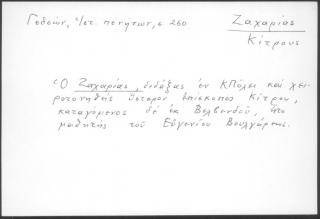 Γεδεών, Πατ. πινητων, σ 260
Ζαχαρίας
Κίτρους
Ὁ Ζαχαρίας, διδάξας ἐν ΚΠόλει καὶ χει-
ροτονηθεὶς ὕστερον ἐπίσκοπος Κίτρου,
καταγόμενος δὲ ἐκ Βελβενδοῦ, ἦτο
μαθητής τοῦ Εὐγενίου Βουλγάρεως.